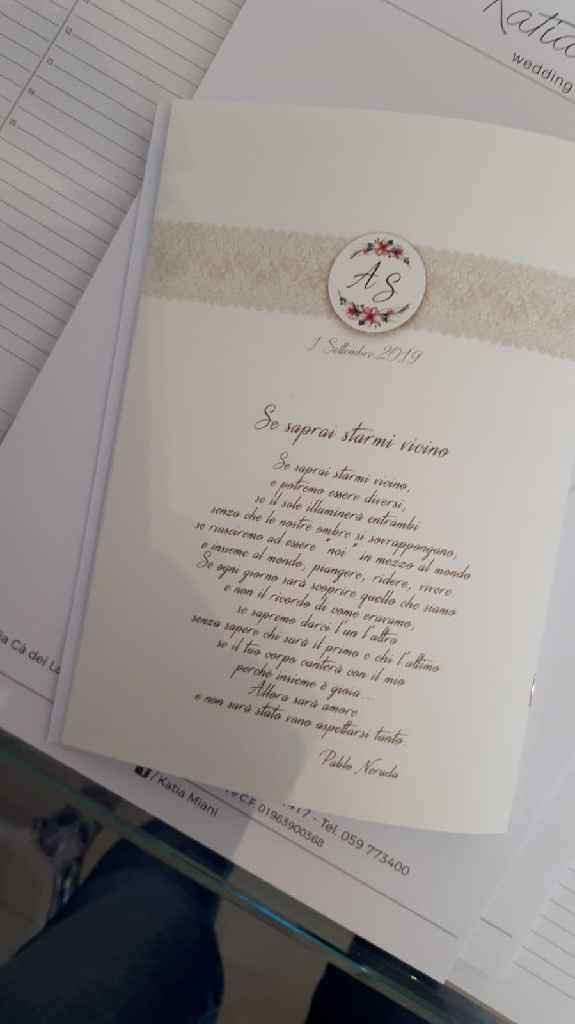 Katia
wedding
A S
1 Settembre 2019
Se saprai starmi vicino
Se saprai starmi vicino,
e potremo essere diversi,
se il sole illuminerà entrambi
senza che le nostre ombre si sovrappongano,
se riusciremo ad essere "noi" in mezzo al mondo
e insieme al mondo, piangere, ridere, vivere.
Se ogni giorno sarà scoprire quello che siamo
e non il ricordo di come eravamo,
se sapremo darci l'un l'altro
senza sapere chi sarà il primo e chi l'ultimo
se il tuo corpo canterà con il mio
perché insieme è gioia...
Allora sarà amore
e non sarà stato vano aspettarsi tanto.
Pablo Neruda
Cà dei
Tel. 059 773400
C.F. 01963900368
/Katia Miani